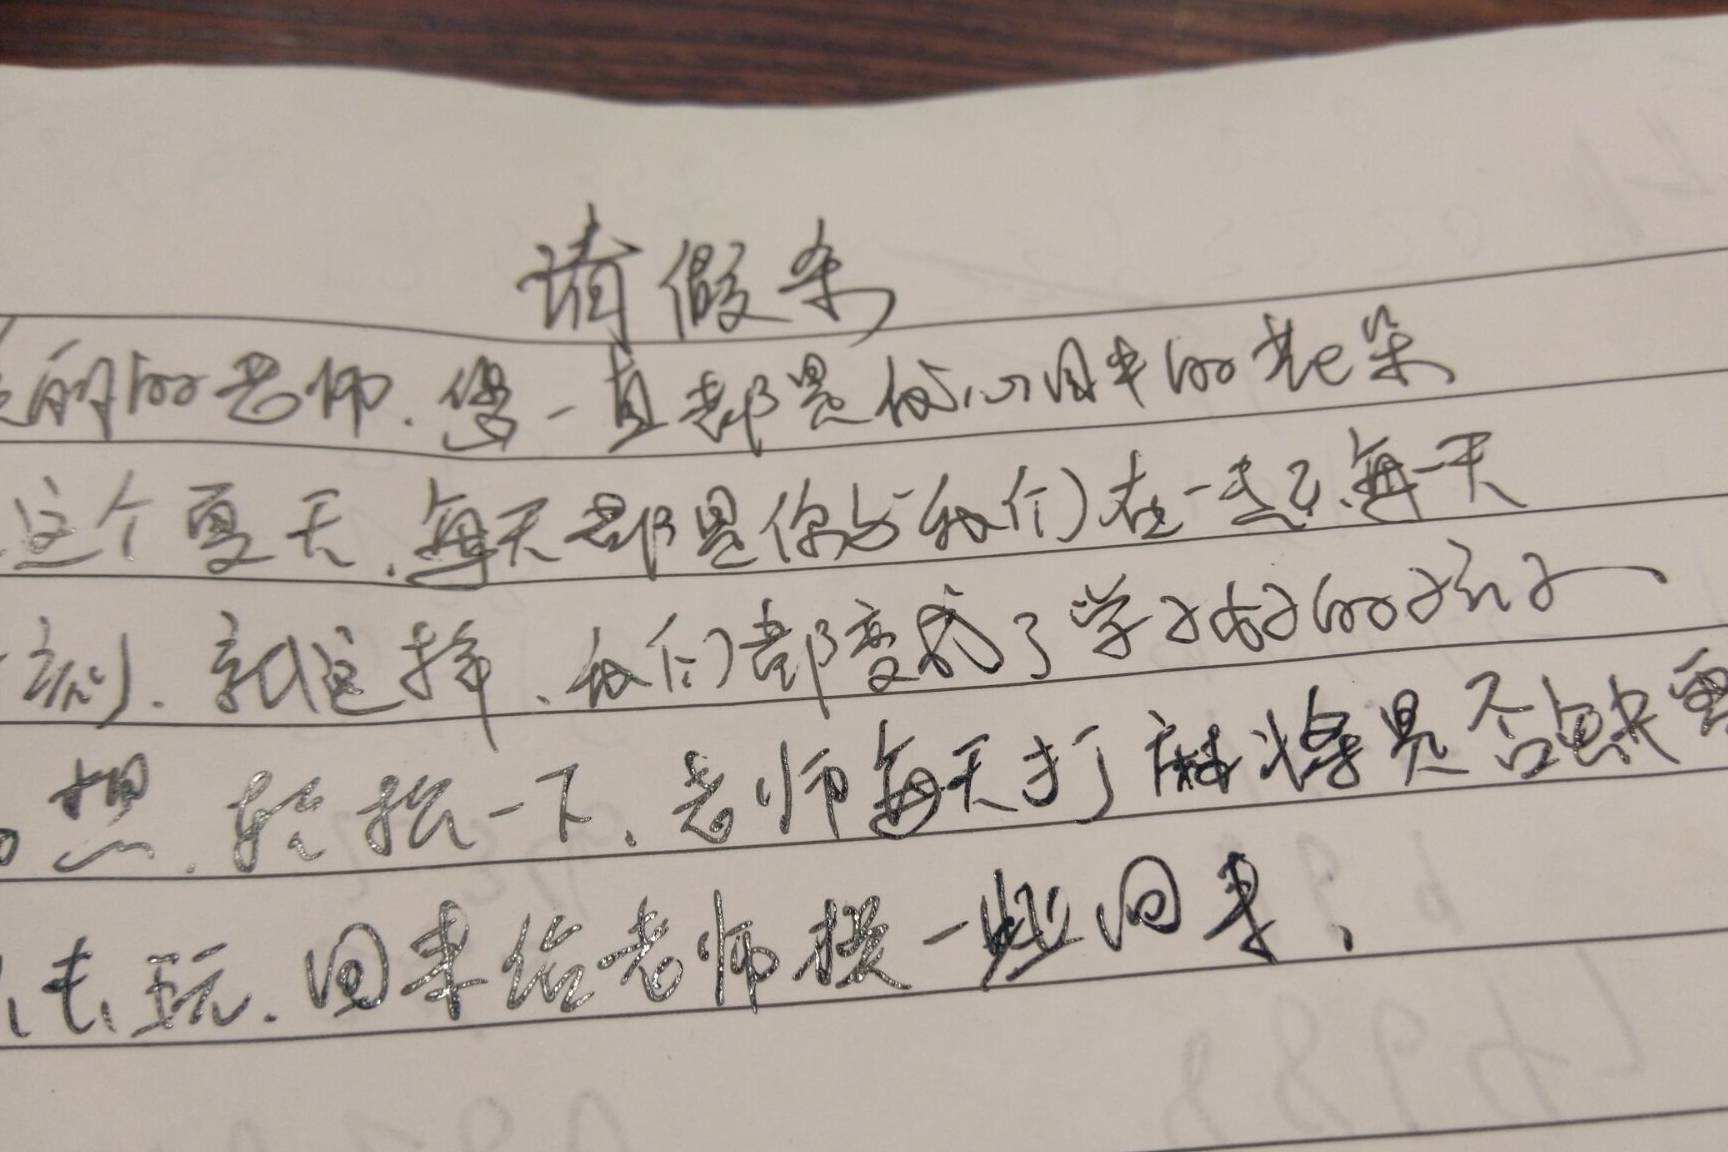 请假条
的老师.您一直都是我心目中的花朵
这个夏天.每天都是你与我们在一起.每一天
刻.就这样、我们都变成了学习好的孩子
想.轻松一下.老师每天打麻将是否缺
去玩.回来给老师摸一些回来、